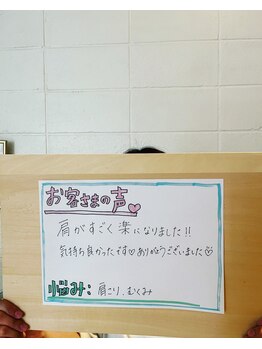 お客さまの声♡
肩がすごく楽になりました!!
気持ち良かったです♡ありがとうございました♡
悩み:肩こり、むくみ